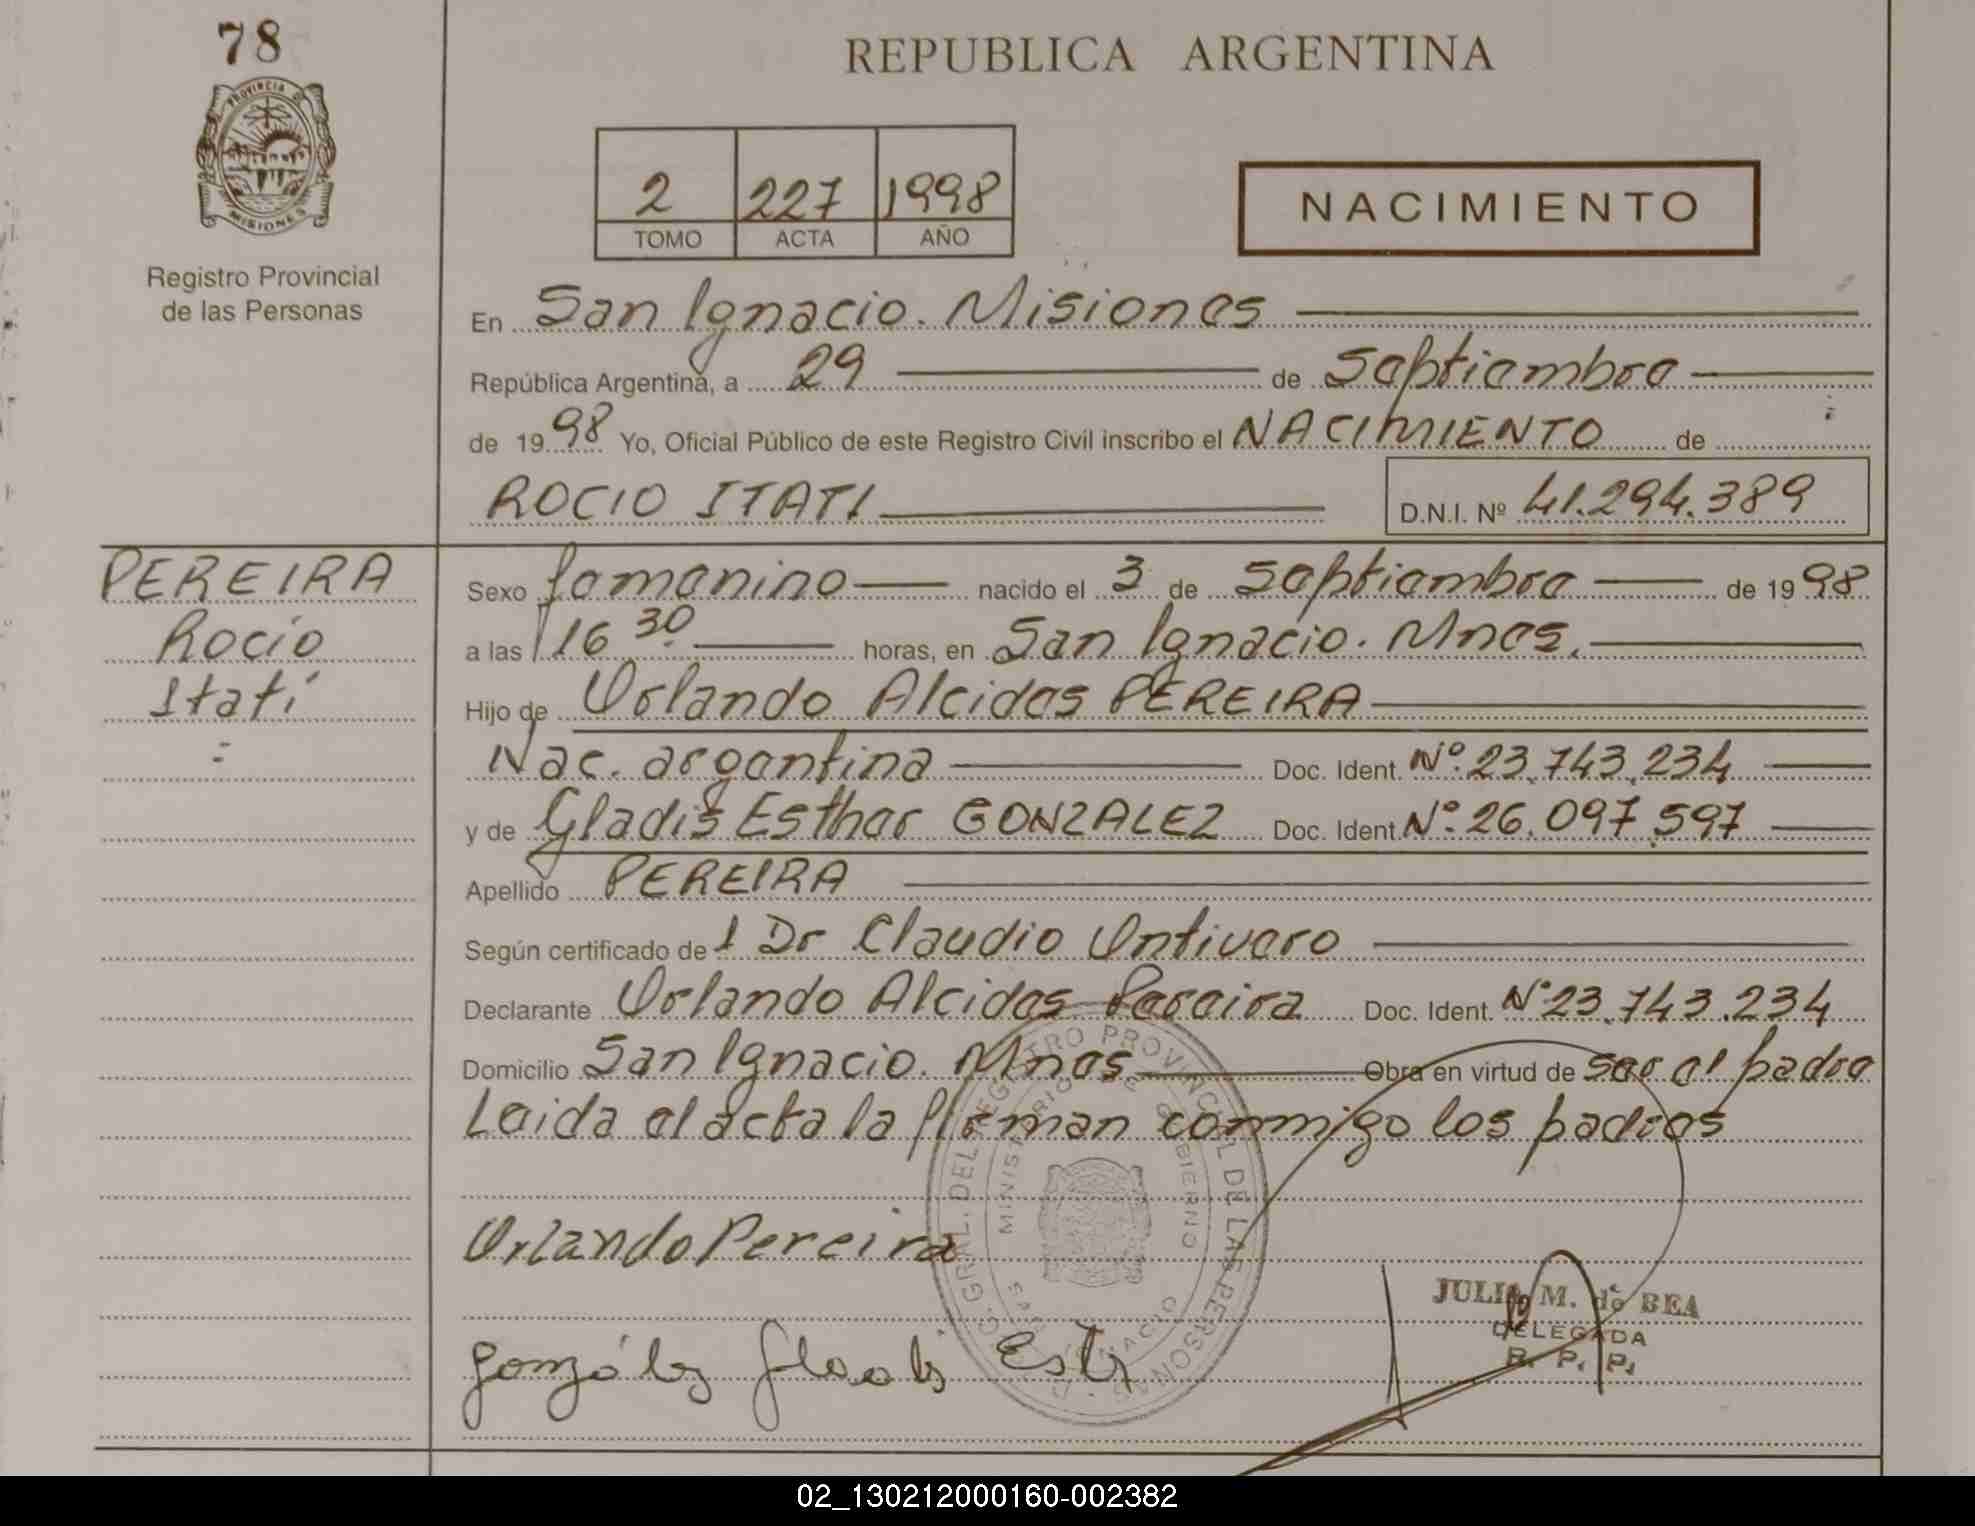 78
PROVINCIA D
MISIONES
Registro Provincial
de las Personas
REPUBLICA ARGENTINA
2 227 1998
TOMO ACTA AÑO
NACIMIENTO
En San Ignacio. Misiones
República Argentina, a 29 de Septiembre
de 1998 Yo, Oficial Público de este Registro Civil inscribo el NACIMIENTO de
ROCIO ITATI D.N.I. Nº 41.294.389
PEREIRA
Rocío
Itatí
Sexo femenino nacido el 3 de Septiembre de 1998
a las 16 30 horas, en San Ignacio. Mnes.
Hijo de Orlando Alcides PEREIRA
Nac. argentina Doc. Ident. Nº 23.743.234
y de Gladis Esther GONZALEZ Doc. Ident. Nº 26.097.597
Apellido PEREIRA
Según certificado de 1 Dr Claudio Ontivero
Declarante Orlando Alcides Pereira Doc. Ident. Nº 23.743.234
Domicilio San Ignacio. Mnes Obra en virtud de ser el padre
Leida el acta la firman conmigo los padres
Orlando Pereira
González Gladis
JULIA M. de BEA
DELEGADA
R. P. P.
GRAL. DEL REGISTRO PROVINCIAL DE LAS PERSONAS
MINISTERIO DE GOBIERNO
SAN IGNACIO
02_130212000160-002382